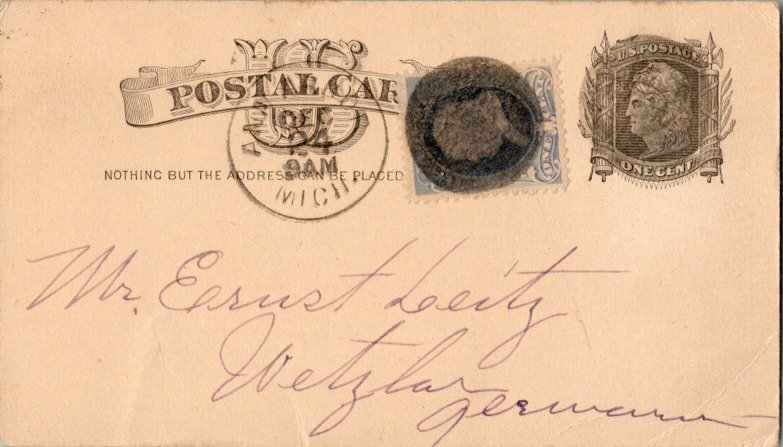 U.S. POSTAGE
POSTAL CAR
DEC
24
9AM
MICH.
ONE CENT
NOTHING BUT THE ADDRESS CAN BE PLACED
Mr Ernst Leitz
Wetzlar
Germany